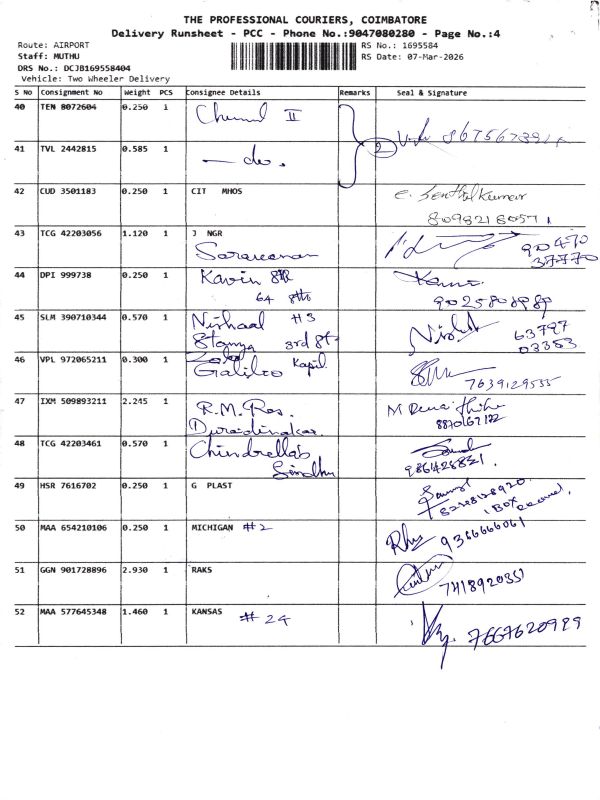 THE PROFESSIONAL COURIERS, COIMBATORE
Delivery Runsheet - PCC - Phone No.:9047080280 - Page No.:4
Route: AIRPORT
Staff: MUTHU
DRS No.: DCJB169558404
Vehicle: Two Wheeler Delivery
RS No.: 1695584
RS Date: 07-Mar-2026
S NO Consignment No Weight PCS Consignee Details Remarks Seal & Signature
40 TEN 8072604 0.250 1 II
41 TVL 2442815 0.585 1 — do. 2
42 CUD 3501183 0.250 1 CIT MHOS
8098218057
43 TCG 42203056 1.120 1 J NGR 90470
Saravanan 37770
44 DPI 999738 0.250 1 Kavin 8th
64 8th
45 SLM 390710344 0.570 1 Nishaal #3 63797
Stanza 3rd St 03353
46 VPL 972065211 0.300 1 Kapil
Galileo 7639129555
47 IXM 509893211 2.245 1 R.M. Ros.
Duraidinakar. 8870167122
48 TCG 42203461 0.570 1 Chindrella's
Sindhu 986428821.
49 HSR 7616702 0.250 1 G PLAST
1 BOX received.
50 MAA 654210106 0.250 1 MICHIGAN #2 9366666061
51 GGN 901728896 2.930 1 RAKS 7418920351
52 MAA 577645348 1.460 1 KANSAS
# 24 7667620999